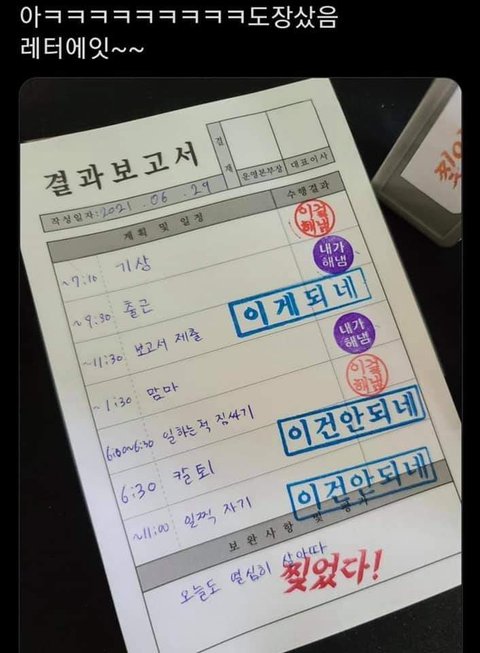 아ㅋㅋㅋㅋㅋㅋㅋㅋㅋ도장샀음
레터에잇~~
결과보고서
결재
운영본부장 대표이사
작성일자: 2021 . 06 . 29
계획 및 일정 수행결과
~7:10 기상
이걸
해냄
~9:30 출근
내가
해냄
~11:30 보고서 제출
이게되네
~1:30 맘마
내가
해냄
6:00~6:30 일하는척 짐싸기
이걸
해냄
6:30 칼퇴
이건안되네
~11:00 일찍 자기
이건안되네
보완사항 및
오늘도 열심히 살아따
찢었다!